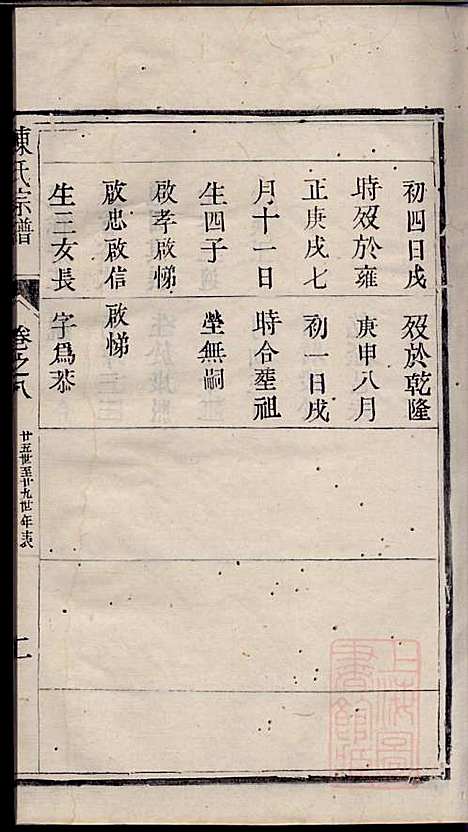 初四日戌
時歿於雍
正庚戌七
月十一日
生四子
啟孝啟悌
啟忠啟信
生三女長
歿於乾隆
庚申八月
初一日戌
時合塟祖
塋無嗣
啟悌
字爲恭
陳氏宗譜
卷之八
廿五世至廿九世年表
二
上海圖
書館藏